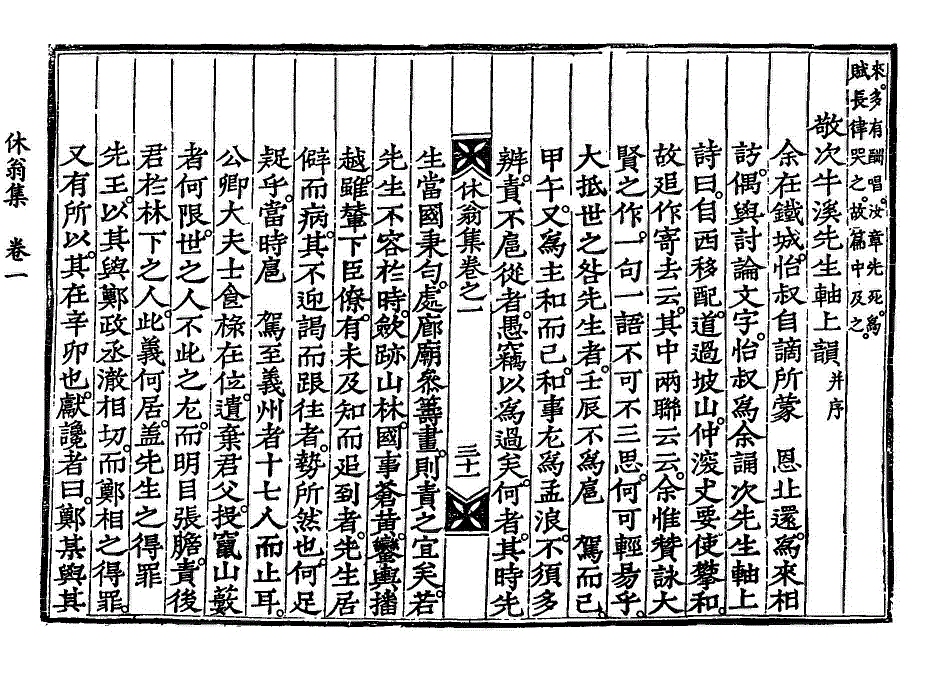 來。多有酬唱。汝章先死。爲
賦長律哭之。故篇中及之。
敬次牛溪先生軸上韻 并序
余在鐵城。怡叔自謫所蒙 恩北還。爲來相
訪。偶與討論文字。怡叔爲余誦次先生軸上
詩曰。自西移配。道過坡山。仲深丈要使攀和。
故追作寄去云。其中兩聯云云。余惟贊詠大
賢之作。一句一語不可不三思。何可輕易乎。
大抵世之咎先生者。壬辰不爲扈 駕而已。
甲午。又爲主和而已。和事尤爲孟浪。不須多
辨。責不扈從者。愚竊以爲過矣。何者。其時先
休翁集卷之一 三十一
生當國秉匀。處廊廟參籌畫。則責之宜矣。若
先生不容於時。斂跡山林。國事蒼黃。鑾輿播
越。雖輦下臣僚。有未及知而追到者。先生居
僻而病。其不迎謁而跟往者。勢所然也。何足
疑乎。當時扈 駕至義州者十七人而止耳。
公卿大夫士食祿在位。遺棄君父。投竄山藪
者何限。世之人不此之尤。而明目張膽。責後
君於林下之人。此義何居。盖先生之得罪
先王。以其與鄭政丞澈相切。而鄭相之得罪。
又有所以。其在辛卯也。獻讒者曰。鄭某與其
休翁集 卷一